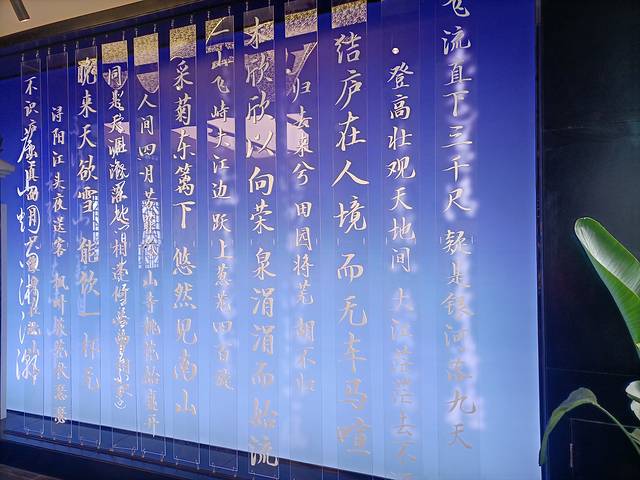 飞流直下三千尺 疑是银河落九天
登高壮观天地间 大江茫茫去不
结庐在人境 而无车马喧
归去来兮 田园将芜 胡不归
木欣欣以向荣 泉涓涓而始流
一山飞峙大江边 跃上葱茏四百旋
采菊东篱下 悠然见南山
人间四月芳菲 山寺桃花始盛开
同是天涯沦落人 相逢何必曾相
晚来天欲雪 能饮一杯无
浔阳江头夜送客 枫叶荻花秋瑟瑟
不识庐山真面